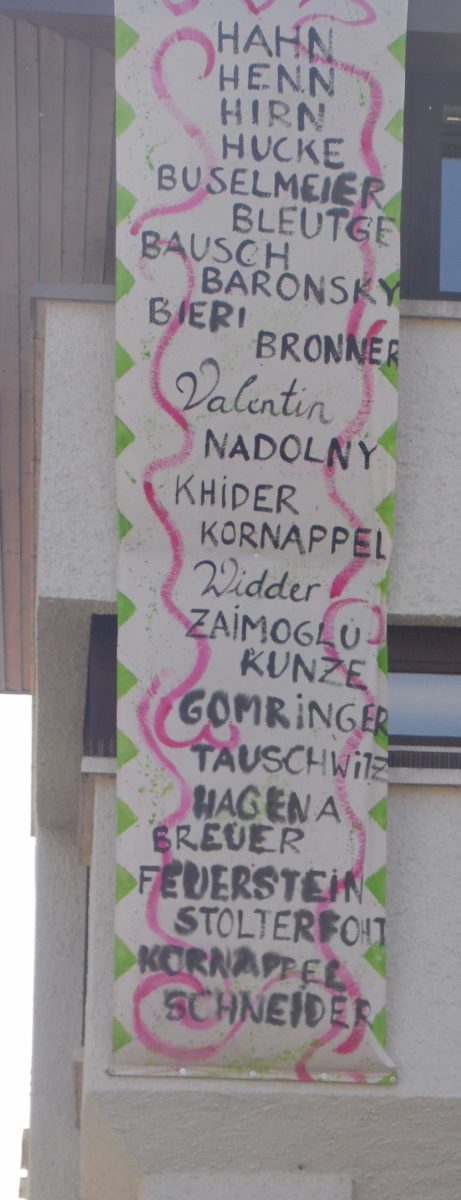 HAHN
HENN
HIRN
HUCKE
BUSELMEIER
BLEUTGE
BAUSCH
BARONSKY
BIERI
BRONNER
Valentin
NADOLNY
KHIDER
KORNAPPEL
Widder
ZAIMOGLU
KUNZE
GOMRINGER
TAUSCHWITZ
HAGENA
BREUER
FEUERSTEIN
STOLTERFOHT
KORNAPPEL
SCHNEIDER